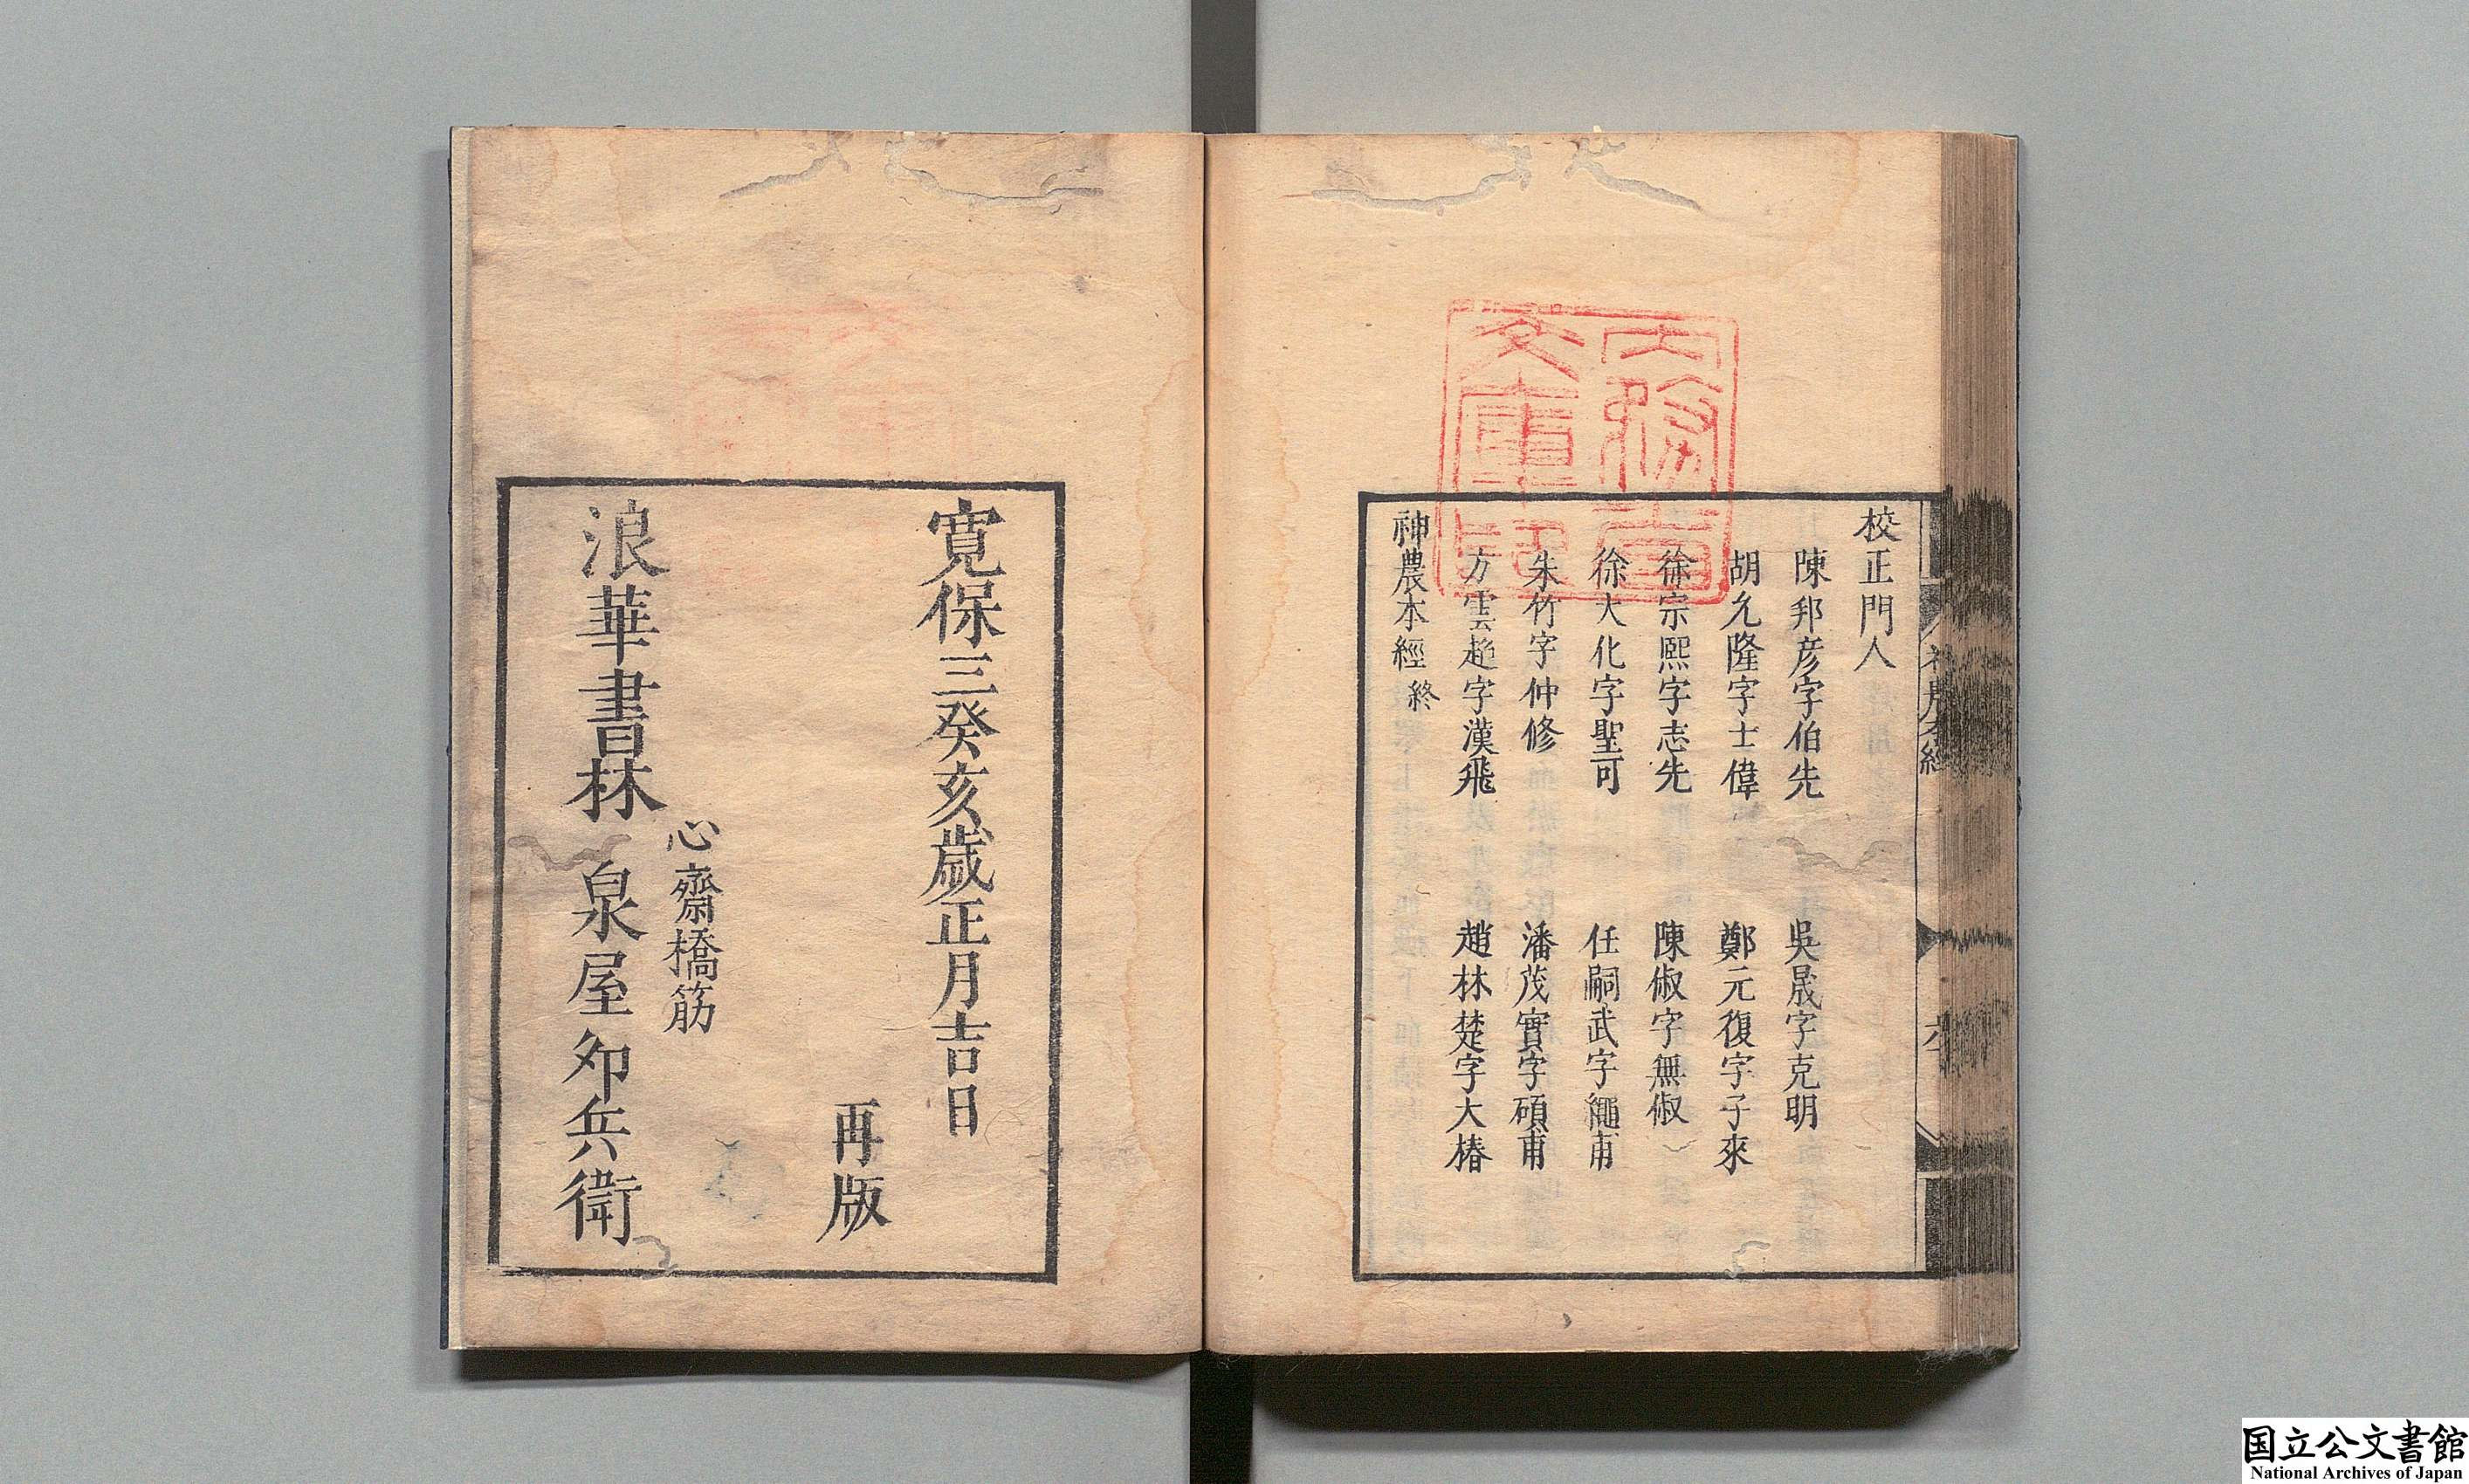 校正門人
陳邦彦字伯先　吳晟字克明
胡允隆字士偉　鄭元復字子來
徐宗熙字志先　陳俶字無俶
徐大化字聖可　任嗣武字繩甫
朱竹字仲修　潘茂實字碩甫
方雲趂字漢飛　趙林楚字大椿
神農本經終
寛保三癸亥歳正月吉日
再版
心齋橋筋
浪華書林　泉屋卯兵衛
国立公文書館
National Archives of Japan